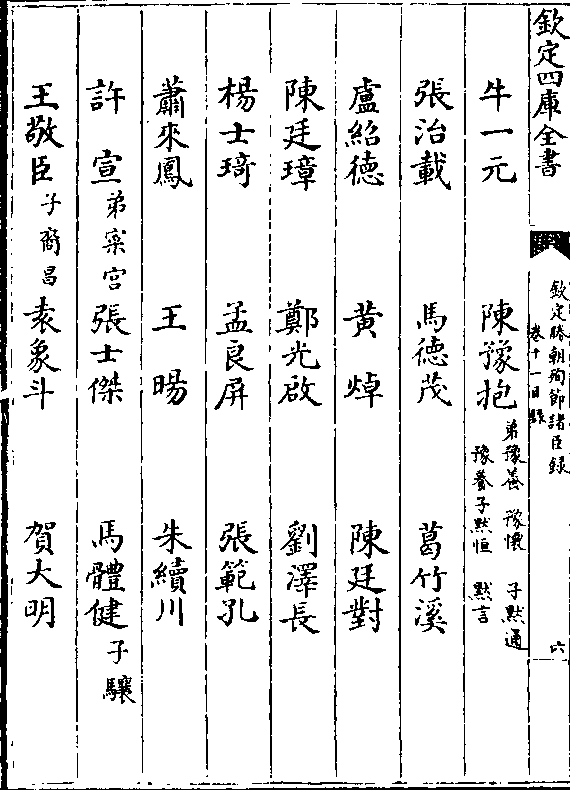 欽定四庫全書
欽定勝朝殉節諸臣録
卷十一目録
六
牛一元 陳豫抱 弟豫養 豫懷 子默通 豫養子默恒 默言
張治載 馬德茂 葛竹溪
盧紹德 黃焯 陳廷對
陳廷璋 鄭光啟 劉澤長
楊士琦 孟良屏 張範孔
蕭來鳳 王暘 朱續川
許宣 弟寀宫 張士傑 馬體健 子驤
王敬臣 子裔昌 袁象斗 賀大明